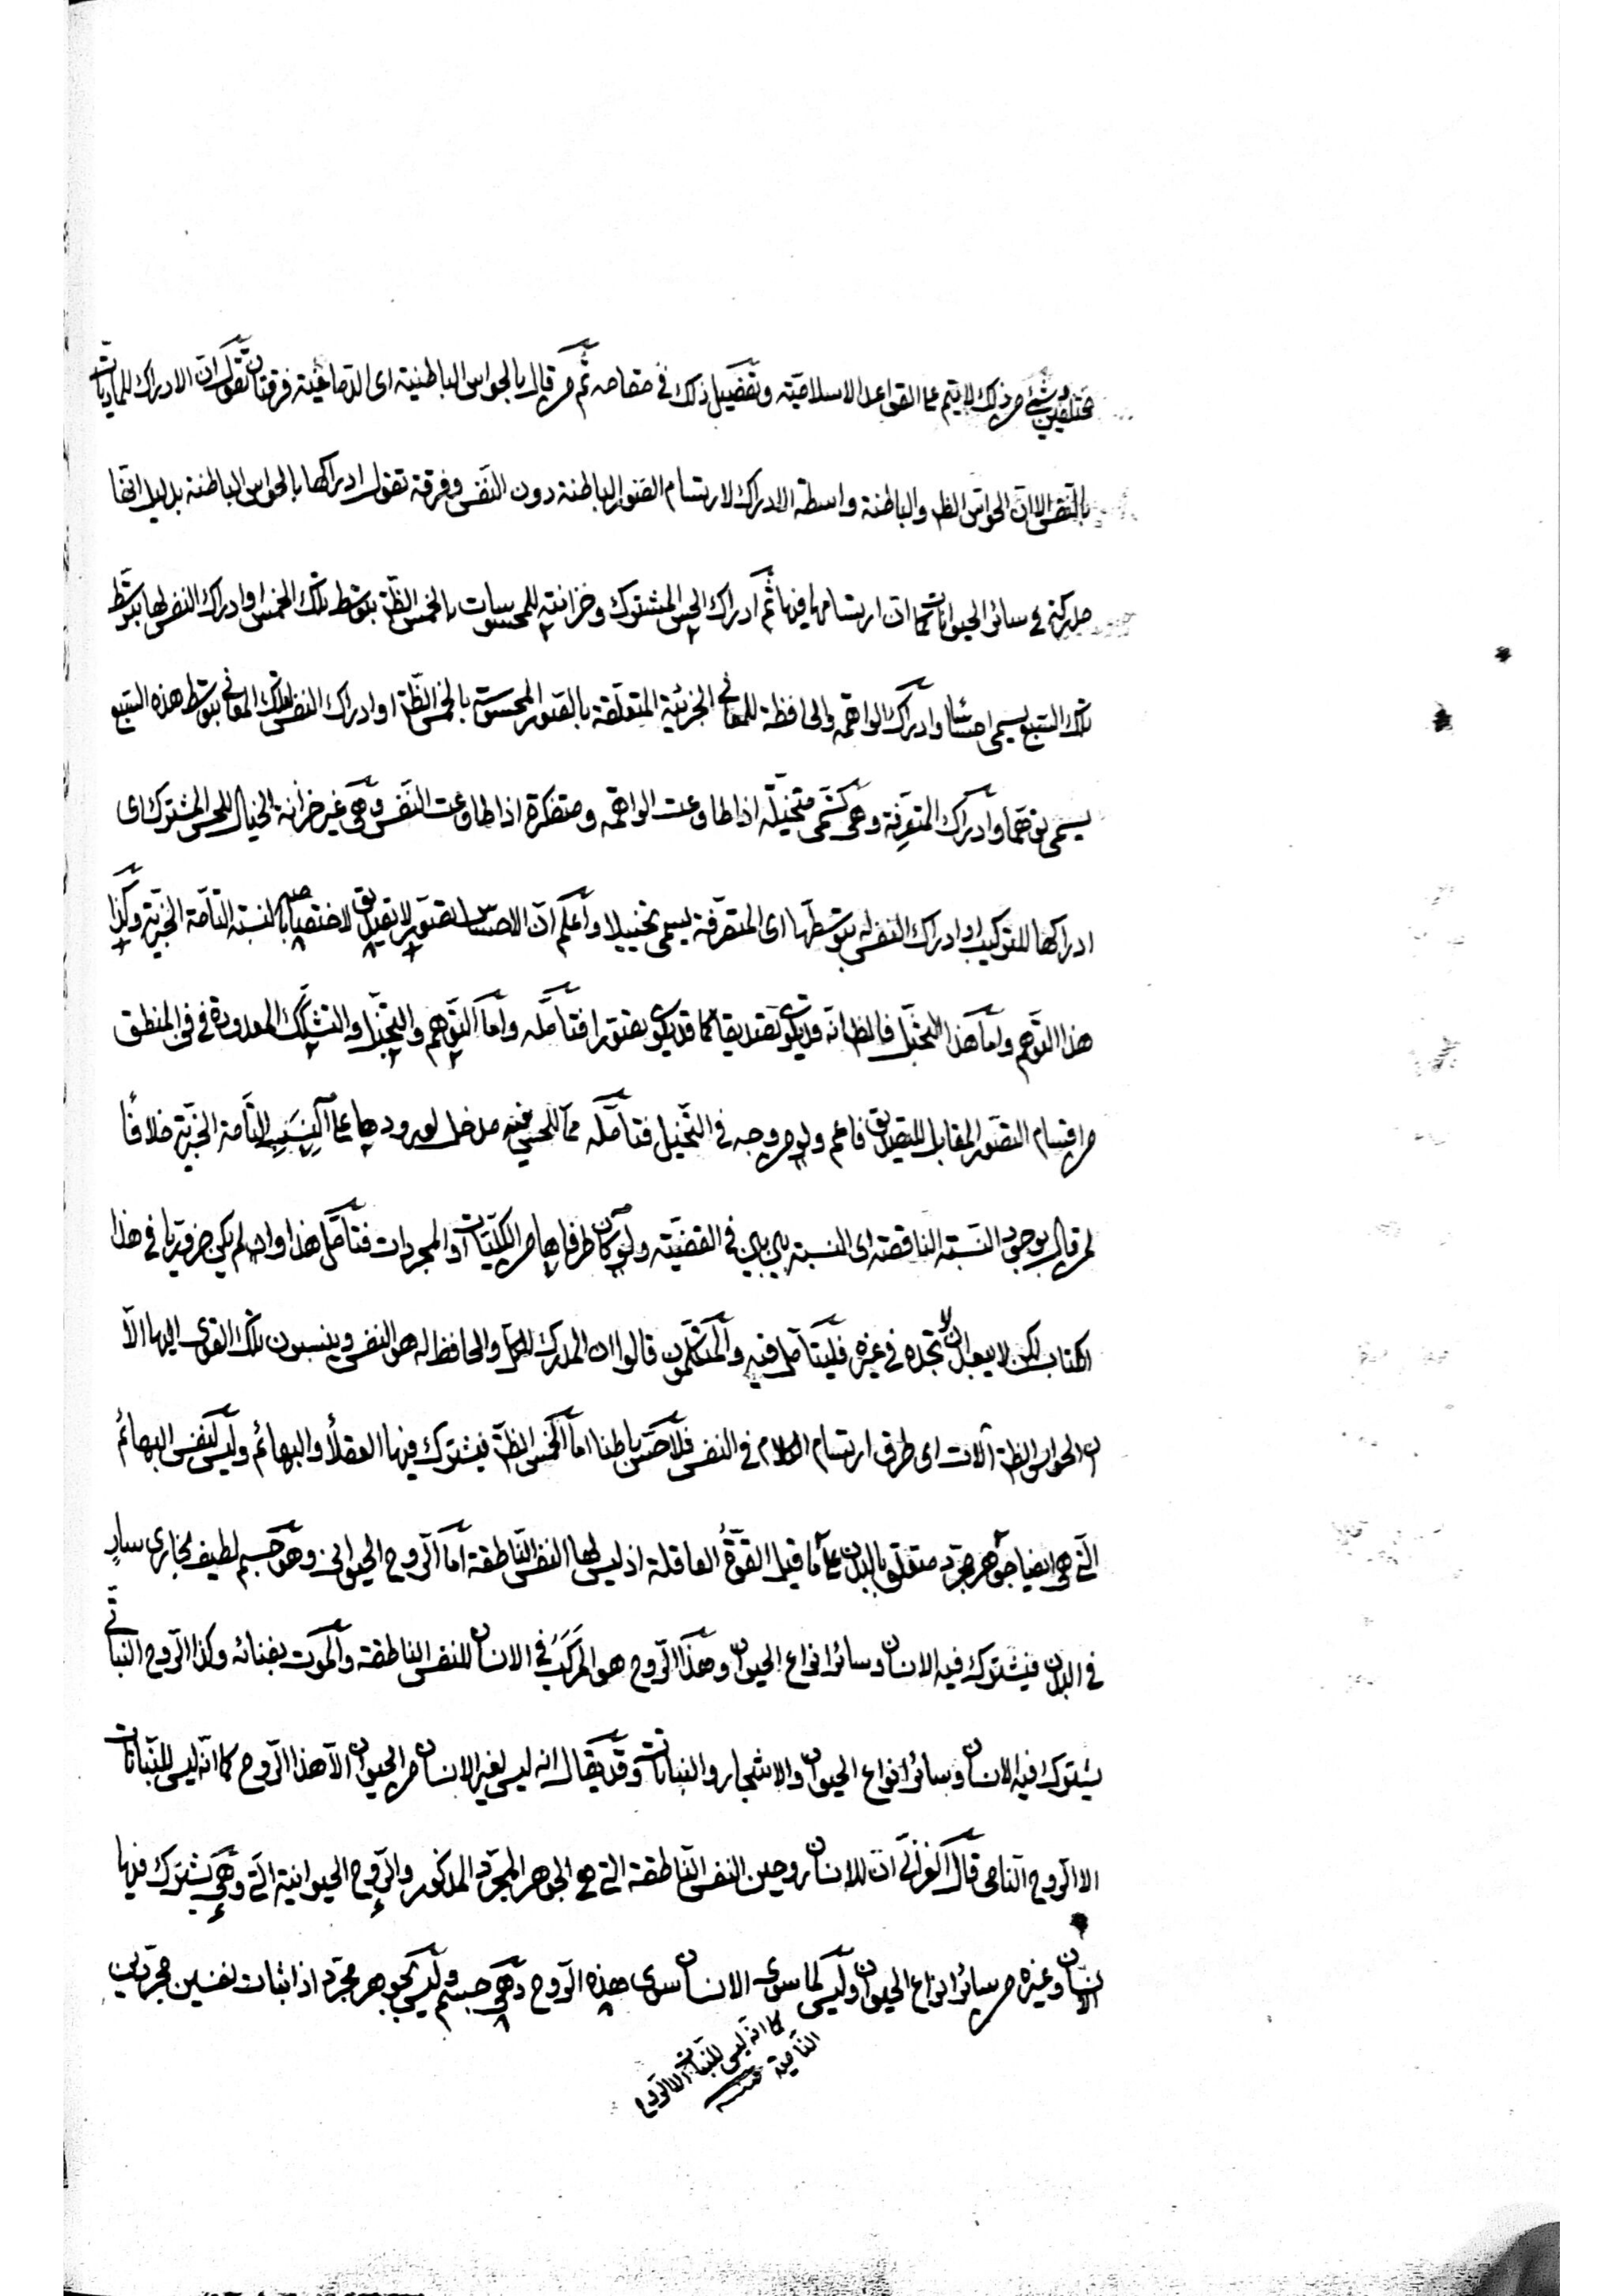 مختلفين وشئ من ذلك لا يتم على القواعد الاسلامية وتفصيل ذلك في مقامه ثم من قال بالحواس الباطنية اى الدماغية فرقتان تقول ان الادراك للماديات
بالنفس الا ان الحواس الظ والباطنة واسطة الادراك لارتسام الصور الباطنة دون النفس وفرقة تقول ادراكها بالحواس الباطنة بدليل انها
مدركة في سائر الحيوانات كما ان ارتسامها فيها ثم ادراك الحس المشترك وخزانته للمحسوسات بالخمس الظة بتوسط تلك الخمس او ادراك النفس لها بتوسط
تلك السبع يسمى احساسا وادراك الواهمة والحافظة للمعاني الجزئية المتعلقة بالصور المحسوسة بالخمس الظة او ادراك النفس لتلك المعاني بتوسط هذه السبع
يسمى توهما وادراك المتصرفة وهي تسمى متخيلة اذا طاوعت الواهمة ومتفكرة اذا طاوعت النفس وهي غير خزانة الخيال للحس المشترك اى
ادراكها للتركيب او ادراك النفس له بتوسطها اى المتصرفة يسمى تخييلا واعلم ان الاحساس تصور لا تصديق لاختصاصه بالنسبة التامة الخبرية وكذا
هذا التوهم واما هذا التخيل فالظ انه قد يكون تصديقا كما قد يكون تصورا فتأمله واما التوهم والتخيل والتشكك المعدودة في فن المنطق
من اقسام التصور المقابل للتصديق فاعم ولو من وجه في التخيل فتأمله مما للحس فيه مدخل لورودها على النسب التامة الخبرية خلافا
لمن قال بوجود النسبة الناقصة اى النسبة بين بين في القضية ولو كان طرفاها من الكليات او المجردات فتأمل هذا وان لم يكن ضروريا في هذا
الكتاب لكن لا يبعد ان لا تجده في غيره فليتأمل فيه والمتكلمون قالوا ان المدرك للكل والحافظ له هو النفس وينسبون تلك القوى اليها الا
ان الحواس الظة آلات اى طرق ارتسام الكلام في النفس فلا حس باطنا اما الخمس الظة فيشترك فيها العقلاء والبهائم وليس لنفس البهائم
التي هي ايضا جوهر مجرد متعلق بالبدن على ما قيل القوة العاقلة اذ ليس لها النفس الناطقة اما الروح الحيواني وهو جسم لطيف بخارى سار
في البدن فيشترك فيه الانسان وسائر انواع الحيوان وهذا الروح هو المركب في الانسان للنفس الناطقة والموت بفنائه وكذا الروح النباتي
يشترك فيه الانسان وسائر انواع الحيوان والاشجار والنباتات وقد يقال انه ليس لغير الانسان من الحيوان الا هذا الروح كما انه ليس للنباتات
الا الروح النامى قال الغزالي ان للانسان روحين النفس الناطقة التي هي الجوهر المجرد المذكور والروح الحيوانية التي وهي يشترك فيها
الانسان وغيره من سائر انواع الحيوان وليس لما سوى الانسان سوى هذه الروح وهي جسم وليس بجوهر مجرد اذ اثبات نفسين مجردين
كما انه ليس للنبات الا الروح
النامية منه